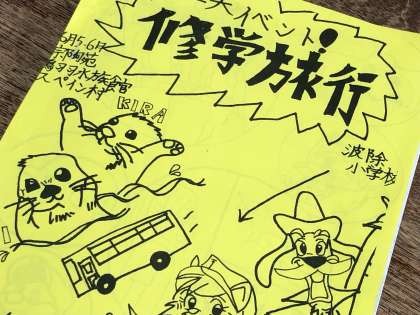 大イベント!
修学旅行
6月5.6月
水族館
スペイン村
KIRA
波除
小学校